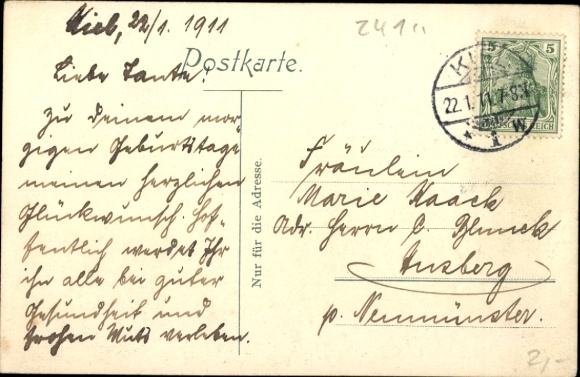 Kiel, 22/1. 1911
Postkarte.
Liebe Tante!
Zu deinem mor-
gigen Geburtstage
meinen herzlichen
Glückwunsch. Hof-
fentlich werdet Ihr
ihn alle bei guter
Gesundheit und
frohen Muts verleben.
Nur für die Adresse.
Fräulein
Marie Kaack
Adr. Herrn C.
Anzberg
p. Neumünster.
5
22.1.11.7-8
* 1 W
2,-